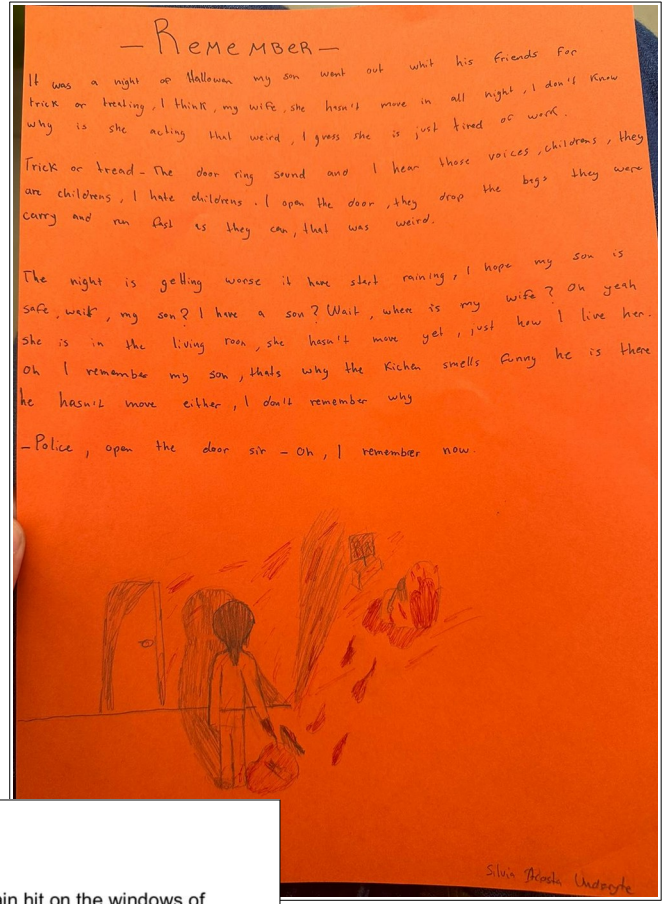 - REMEMBER -
It was a night of Hallowan my son went out whit his friends for
trick or treating, I think, my wife, she hasn't move in all night, I don't know
why is she acting that weird, I guess she is just tired of work.
Trick or tread - The door ring sound and I hear those voices, childrens, they
are childrens, I hate childrens. I open the door, they drop the bags they were
carry and run fast as they can, that was weird.
The night is getting worse it have start raining, I hope my son is
safe, wait, my son? I have a son? Wait, where is my wife? Oh yeah
she is in the living room, she hasn't move yet, just how I live her.
Oh I remember my son, thats why the kichen smells funny he is there
he hasn't move either, I don't remember why
- Police, open the door sir - Oh, I remember now.
Silvia Acosta
ain hit on the windows of